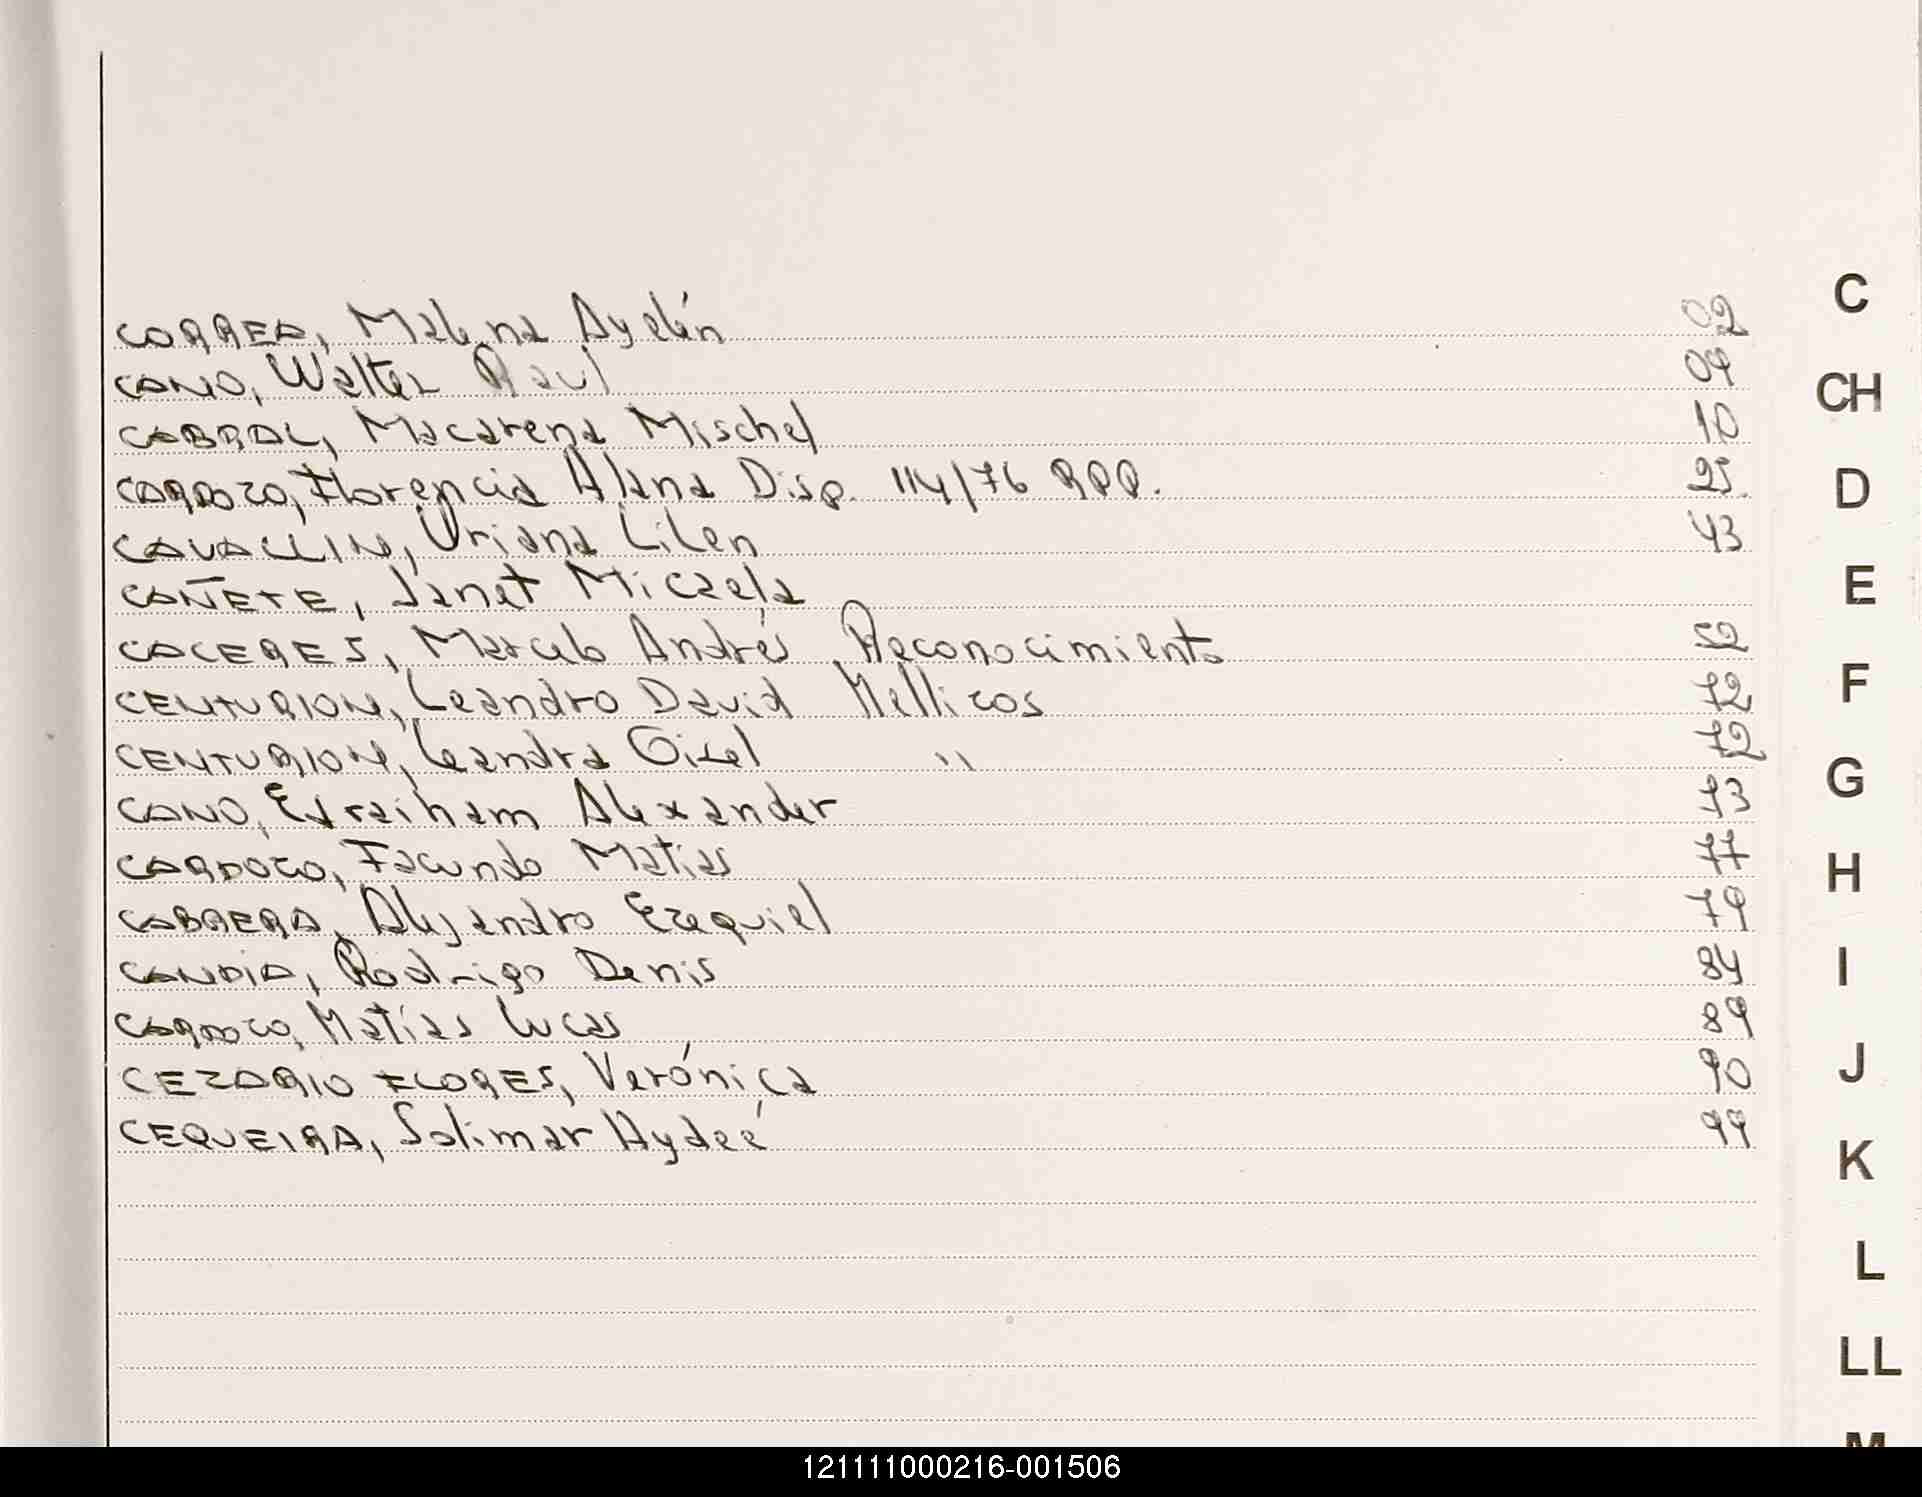 CORREA, Malena Ayelén 02
C
CANO, Walter Raul 09
CH
CABRAL, Macarena Mischel 10
CARDOZO, Florencia Alana Disp. 114/76 RPP. 25
D
CAVALLIN, Oriana Lilen 43
CAÑETE, Janet Micaela
E
CACERES, Marcelo Andrés Reconocimiento 52
CENTURION, Leandro David Mellizos 72
F
CENTURION, Leandra Gisel " 72
G
CANO, Alexander 73
CARDOZO, Facundo Matias 77
H
CABRERA, Alejandro Ezequiel 79
CANDIA, Rodrigo Denis 84
I
CARDOZO, Matías Lucas 89
CEZARIO FLORES, Verónica 90
J
CEQUEIRA, Solimar Hydeé 99
K
L
LL
M
121111000216-001506